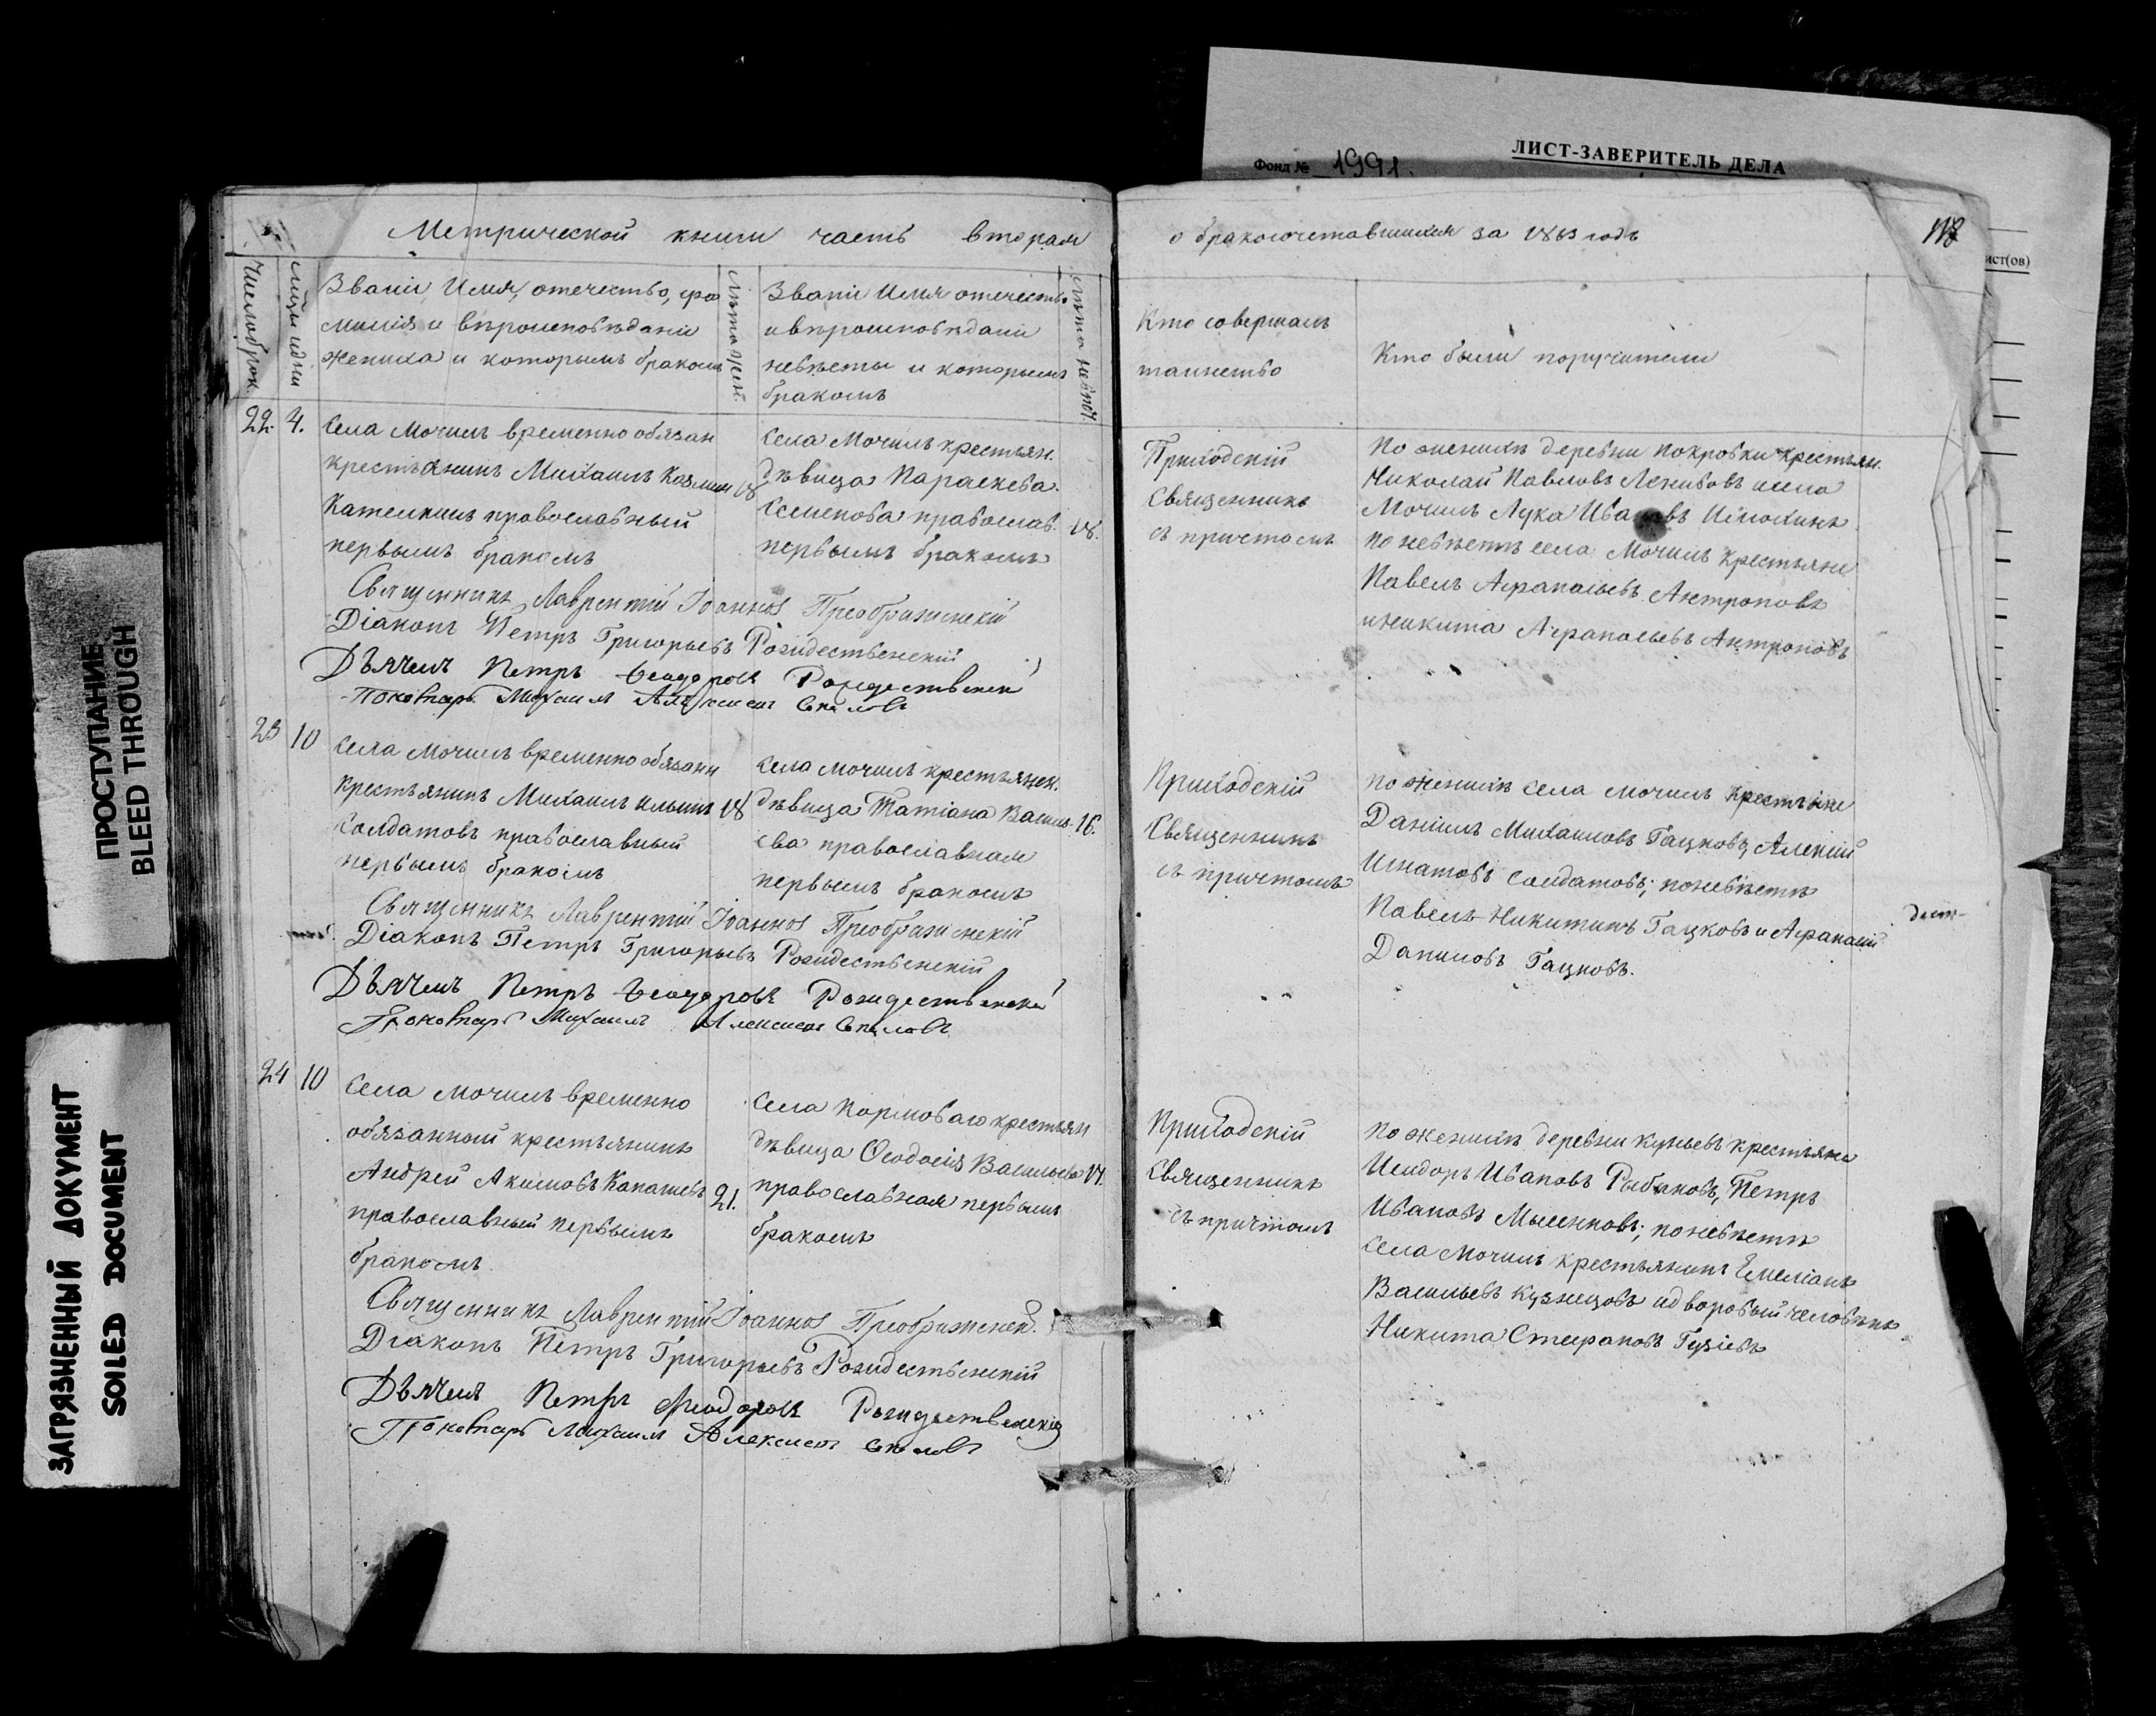 ЛИСТ-ЗАВЕРИТЕЛЬ ДЕЛА
Фонд № 1991.
ист(ов)
ПРОСТУПАНИЕ
BLEED THROUGH
ЗАГРЯЗНЕННЫЙ ДОКУМЕНТ
SOILED DOCUMENT
Метрической книги часть вторая
о бракосочетавшихся за 1863 годъ
118
Число брак.
Мѣсяцъ и дни
Званіе Имя, отечество, фа
милія и вѣроисповѣданіе
жениха и которымъ бракомъ
Лѣта жен.
Званіе Имя отечество
и вѣроисповѣданіе
невѣсты и которымъ
бракомъ
Лѣта невѣст.
Кто совершалъ
таинство
Кто были поручители
22. 4.
Села Мочилъ временно обязан
крестьянинъ Михаилъ Козмин 18
Катешкинъ православный
первымъ бракомъ
Села Мочилъ крестьян.
дѣвица Параскева.
Семенова православ. 18.
первымъ бракомъ
Приходскій
Священникъ
съ причтомъ
По женихѣ деревни Покровки крестьян.
Николай Павловъ Ленивовъ и села
Мочилъ Лука Ивановъ
по невѣстѣ села Мочилъ крестьяне
Павелъ Афанасьевъ Антроповъ
и Никита Афанасьевъ Антроповъ
Священникъ Лаврентій Іоанновъ Преображенскій
Діаконъ Петръ Григорьевъ Рождественскій
Дьячекъ Петръ Ѳеодоровъ Рождественскій
Пономарь Михаилъ Алексѣевъ Соколовъ
23 10
Села Мочилъ временно обязанн
крестьянинъ Михаилъ Ильинъ 18
Солдатовъ православный
первымъ бракомъ
Села Мочилъ крестьянск.
дѣвица Татіана Василь- 16.
ева православная
первымъ бракомъ
Приходскій
Священникъ
съ причтомъ
По женихѣ села Мочилъ крестьяне
Даніилъ Михаиловъ Гацковъ, Алексій
Игнатовъ Солдатовъ; по невѣстѣ
Павелъ Никитинъ Гацковъ и Афанасій
Даниловъ Гацковъ.
Священникъ Лаврентій Іоанновъ Преображенскій
Діаконъ Петръ Григорьевъ Рождественскій
Дьячекъ Петръ Ѳеодоровъ Рождественскій
Пономарь Михаилъ Алексѣевъ Соколовъ
24 10
Села Мочилъ временно
обязанной крестьянинъ
Андрей Акимовъ Канашевъ 21.
православный первымъ
бракомъ.
Села Кормоваго крестьян
дѣвица Ѳеодосія Васильева 17.
православная первымъ
бракомъ
Приходскій
Священникъ
съ причтомъ
По женихѣ деревни Куньевъ крестьяне
Исидоръ Ивановъ Рыбаковъ, Петръ
Ивановъ Мысенковъ; по невѣстѣ
села Мочилъ крестьянинъ Емеліанъ
Васильевъ Кузнецовъ и дворовый человѣкъ
Никита Стефановъ Гузіевъ
Священникъ Лаврентій Іоанновъ Преображенск.
Діаконъ Петръ Григорьевъ Рождественскій
Дьячекъ Петръ Ѳеодоровъ Рождественскій
Пономарь Михаилъ Алексѣевъ Соколовъ